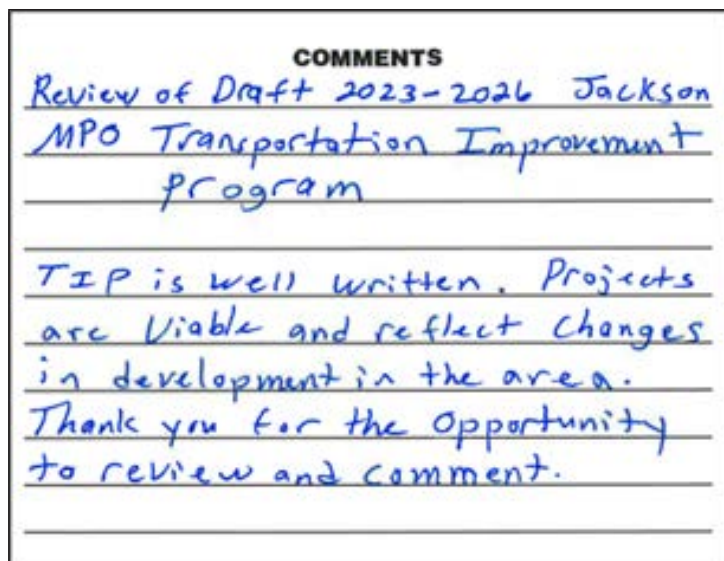 COMMENTS
Review of Draft 2023-2026 Jackson
MPO Transportation Improvement
Program
TIP is well written. Projects
are Viable and reflect Changes
in development in the area.
Thank you for the Opportunity
to review and comment.